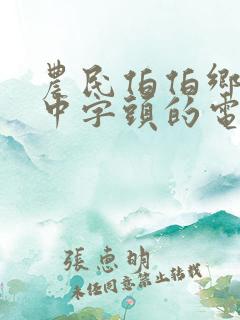 農民伯伯鄉
中字頭的電
張恵明
未经同意禁止转载